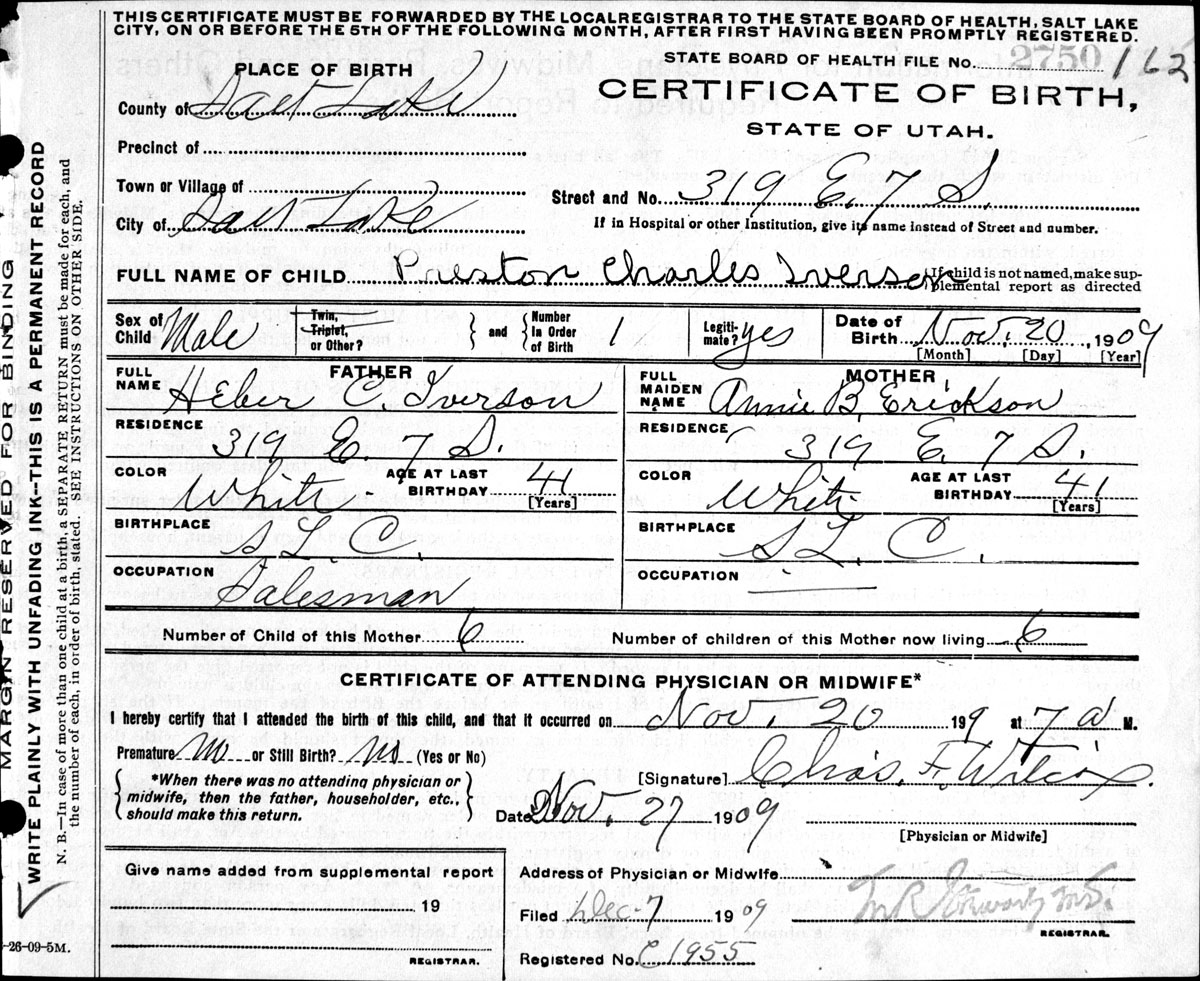 THIS CERTIFICATE MUST BE FORWARDED BY THE LOCAL REGISTRAR TO THE STATE BOARD OF HEALTH, SALT LAKE
CITY, ON OR BEFORE THE 5TH OF THE FOLLOWING MONTH, AFTER FIRST HAVING BEEN PROMPTLY REGISTERED.
STATE BOARD OF HEALTH FILE No. 2750 / 162
PLACE OF BIRTH
CERTIFICATE OF BIRTH,
County of Salt Lake
STATE OF UTAH.
Precinct of
Town or Village of
Street and No. 319 E. 7 S.
City of Salt Lake
If in Hospital or other Institution, give its name instead of Street and number.
FULL NAME OF CHILD Preston Charles Iverson
If child is not named, make sup-
plemental report as directed
Sex of Child Male
Twin, Triplet, or Other?
and Number In Order of Birth 1
Legiti-mate? yes
Date of Birth Nov. 20, 1909
[Month] [Day] [Year]
FATHER
FULL NAME Heber C. Iverson
RESIDENCE 319 E. 7 S.
COLOR White AGE AT LAST BIRTHDAY 41 [Years]
BIRTHPLACE S. L. C.
OCCUPATION Salesman
MOTHER
FULL MAIDEN NAME Annie B. Erickson
RESIDENCE 319 E. 7 S.
COLOR White AGE AT LAST BIRTHDAY 41 [Years]
BIRTHPLACE S. L. C.
OCCUPATION
Number of Child of this Mother 6 Number of children of this Mother now living 6
CERTIFICATE OF ATTENDING PHYSICIAN OR MIDWIFE*
I hereby certify that I attended the birth of this child, and that it occurred on Nov. 20 199 at 7 a M.
Premature No or Still Birth? No (Yes or No)
*When there was no attending physician or
midwife, then the father, householder, etc.,
should make this return.
[Signature] Chas. F. Wilcox.
Date Nov. 27 1909
[Physician or Midwife]
Give name added from supplemental report
19
REGISTRAR.
Address of Physician or Midwife
Filed Dec-7 1909
REGISTRAR.
Registered No. C 1955
MARGIN RESERVED FOR BINDING
WRITE PLAINLY WITH UNFADING INK—THIS IS A PERMANENT RECORD
N. B.—In case of more than one child at a birth, a SEPARATE RETURN must be made for each, and
the number of each, in order of birth, stated. SEE INSTRUCTIONS ON OTHER SIDE.
-26-09-5M.